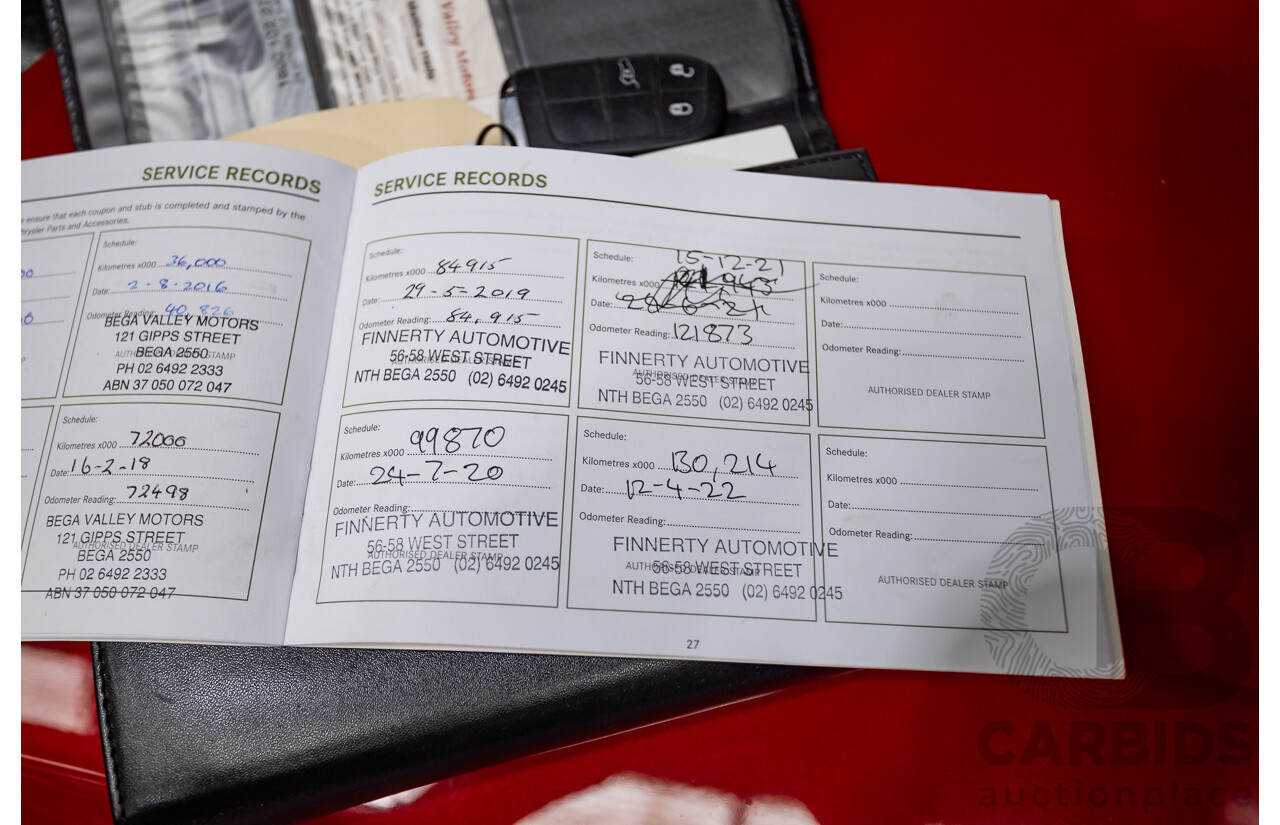 Valley Motors
Matthew Hade
SERVICE RECORDS
ensure that each coupon and stub is completed and stamped by the
hrysler Parts and Accessories.
Schedule:
Kilometres x000 36,000
Date: 2-8-2016
Odometer Reading: 40,826
BEGA VALLEY MOTORS
121 GIPPS STREET
BEGA 2550
AUTHORISED DEALER STAMP
PH 02 6492 2333
ABN 37 050 072 047
Schedule:
Kilometres x000 72000
Date: 16-2-18
Odometer Reading: 72498
BEGA VALLEY MOTORS
121 GIPPS STREET
AUTHORISED DEALER STAMP
BEGA 2550
PH 02 6492 2333
ABN 37 050 072 047
SERVICE RECORDS
Schedule:
Kilometres x000 84915
Date: 29-5-2019
Odometer Reading: 84,915
FINNERTY AUTOMOTIVE
56-58 WEST STREET
AUTHORISED DEALER STAMP
NTH BEGA 2550 (02) 6492 0245
Schedule: 15-12-21
Kilometres x000
Date:
Odometer Reading: 121873
FINNERTY AUTOMOTIVE
AUTHORISED DEALER STAMP
56-58 WEST STREET
NTH BEGA 2550 (02) 6492 0245
Schedule:
Kilometres x000
Date:
Odometer Reading:
AUTHORISED DEALER STAMP
Schedule:
Kilometres x000 99870
Date: 24-7-20
Odometer Reading:
FINNERTY AUTOMOTIVE
56-58 WEST STREET
AUTHORISED DEALER STAMP
NTH BEGA 2550 (02) 6492 0245
Schedule:
Kilometres x000 130,214
Date: 12-4-22
Odometer Reading:
FINNERTY AUTOMOTIVE
AUTHORISED DEALER STAMP
56-58 WEST STREET
NTH BEGA 2550 (02) 6492 0245
Schedule:
Kilometres x000
Date:
Odometer Reading:
AUTHORISED DEALER STAMP
27
CARBIDS
auctionplace